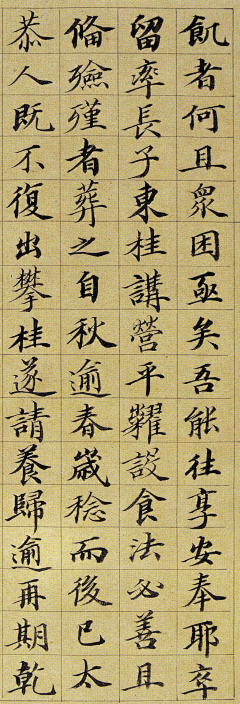 飢者何且衆困亟矣吾能往享安奉耶卒
留率長子東桂講營平糶設食法必善且
俻殮殣者葬之自秋逾春歲稔而後已太
恭人既不復出攀桂遂請養歸逾再期乾